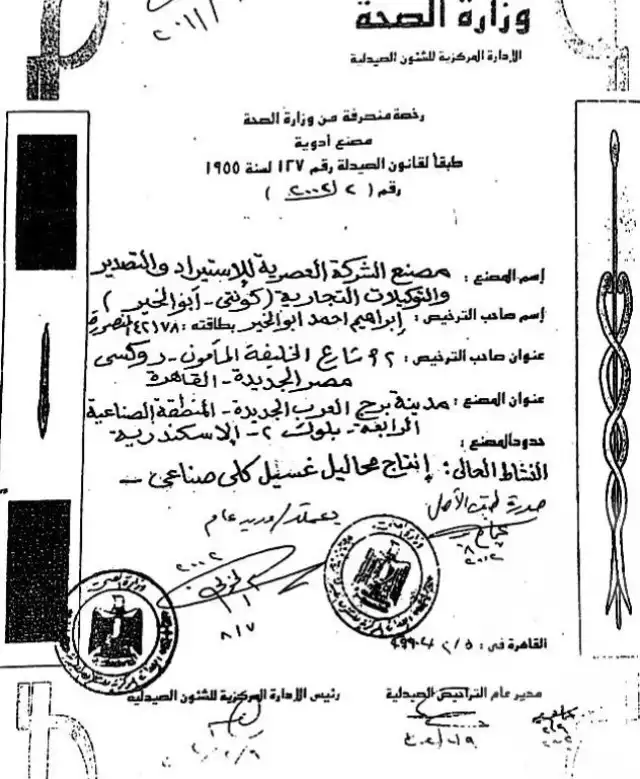 ٢٠١١/
وزارة الصحة
الإدارة المركزية للشئون الصيدلية
رخصة منصرفة من وزارة الصحة
مصنع أدوية
طبقاً لقانون الصيدلة رقم ١٢٧ لسنة ١٩٥٥
رقم ( ٢ / ٢٠٠٢ )
إسم المصنع : مصنع الشركة العصرية للإستيراد والتصدير
والتوكيلات التجارية (كونتى - أبوالخير)
إسم صاحب الترخيص : إبراهيم احمد ابوالخير بطاقته : ٤٢١٧٨ المنصورة
عنوان صاحب الترخيص : ٩٢ شارع الخليفة المأمون - روكسى
مصر الجديدة - القاهرة
عنوان المصنع : مدينة برج العرب الجديدة - المنطقة الصناعية
الرابعة - بلوك ٢ - الاسكندرية
حدود المصنع :
النشاط الحالى : إنتاج محاليل غسيل كلى صناعى -
صورة طبق الأصل
يعتمد / مدير عام
٢٠٠٢
٨/٧
٨
٢٠٠٢
وزارة الصحة
القاهرة فى : ٢/٥
مدير عام التراخيص الصيدلية
رئيس الإدارة المركزية للشئون الصيدلية